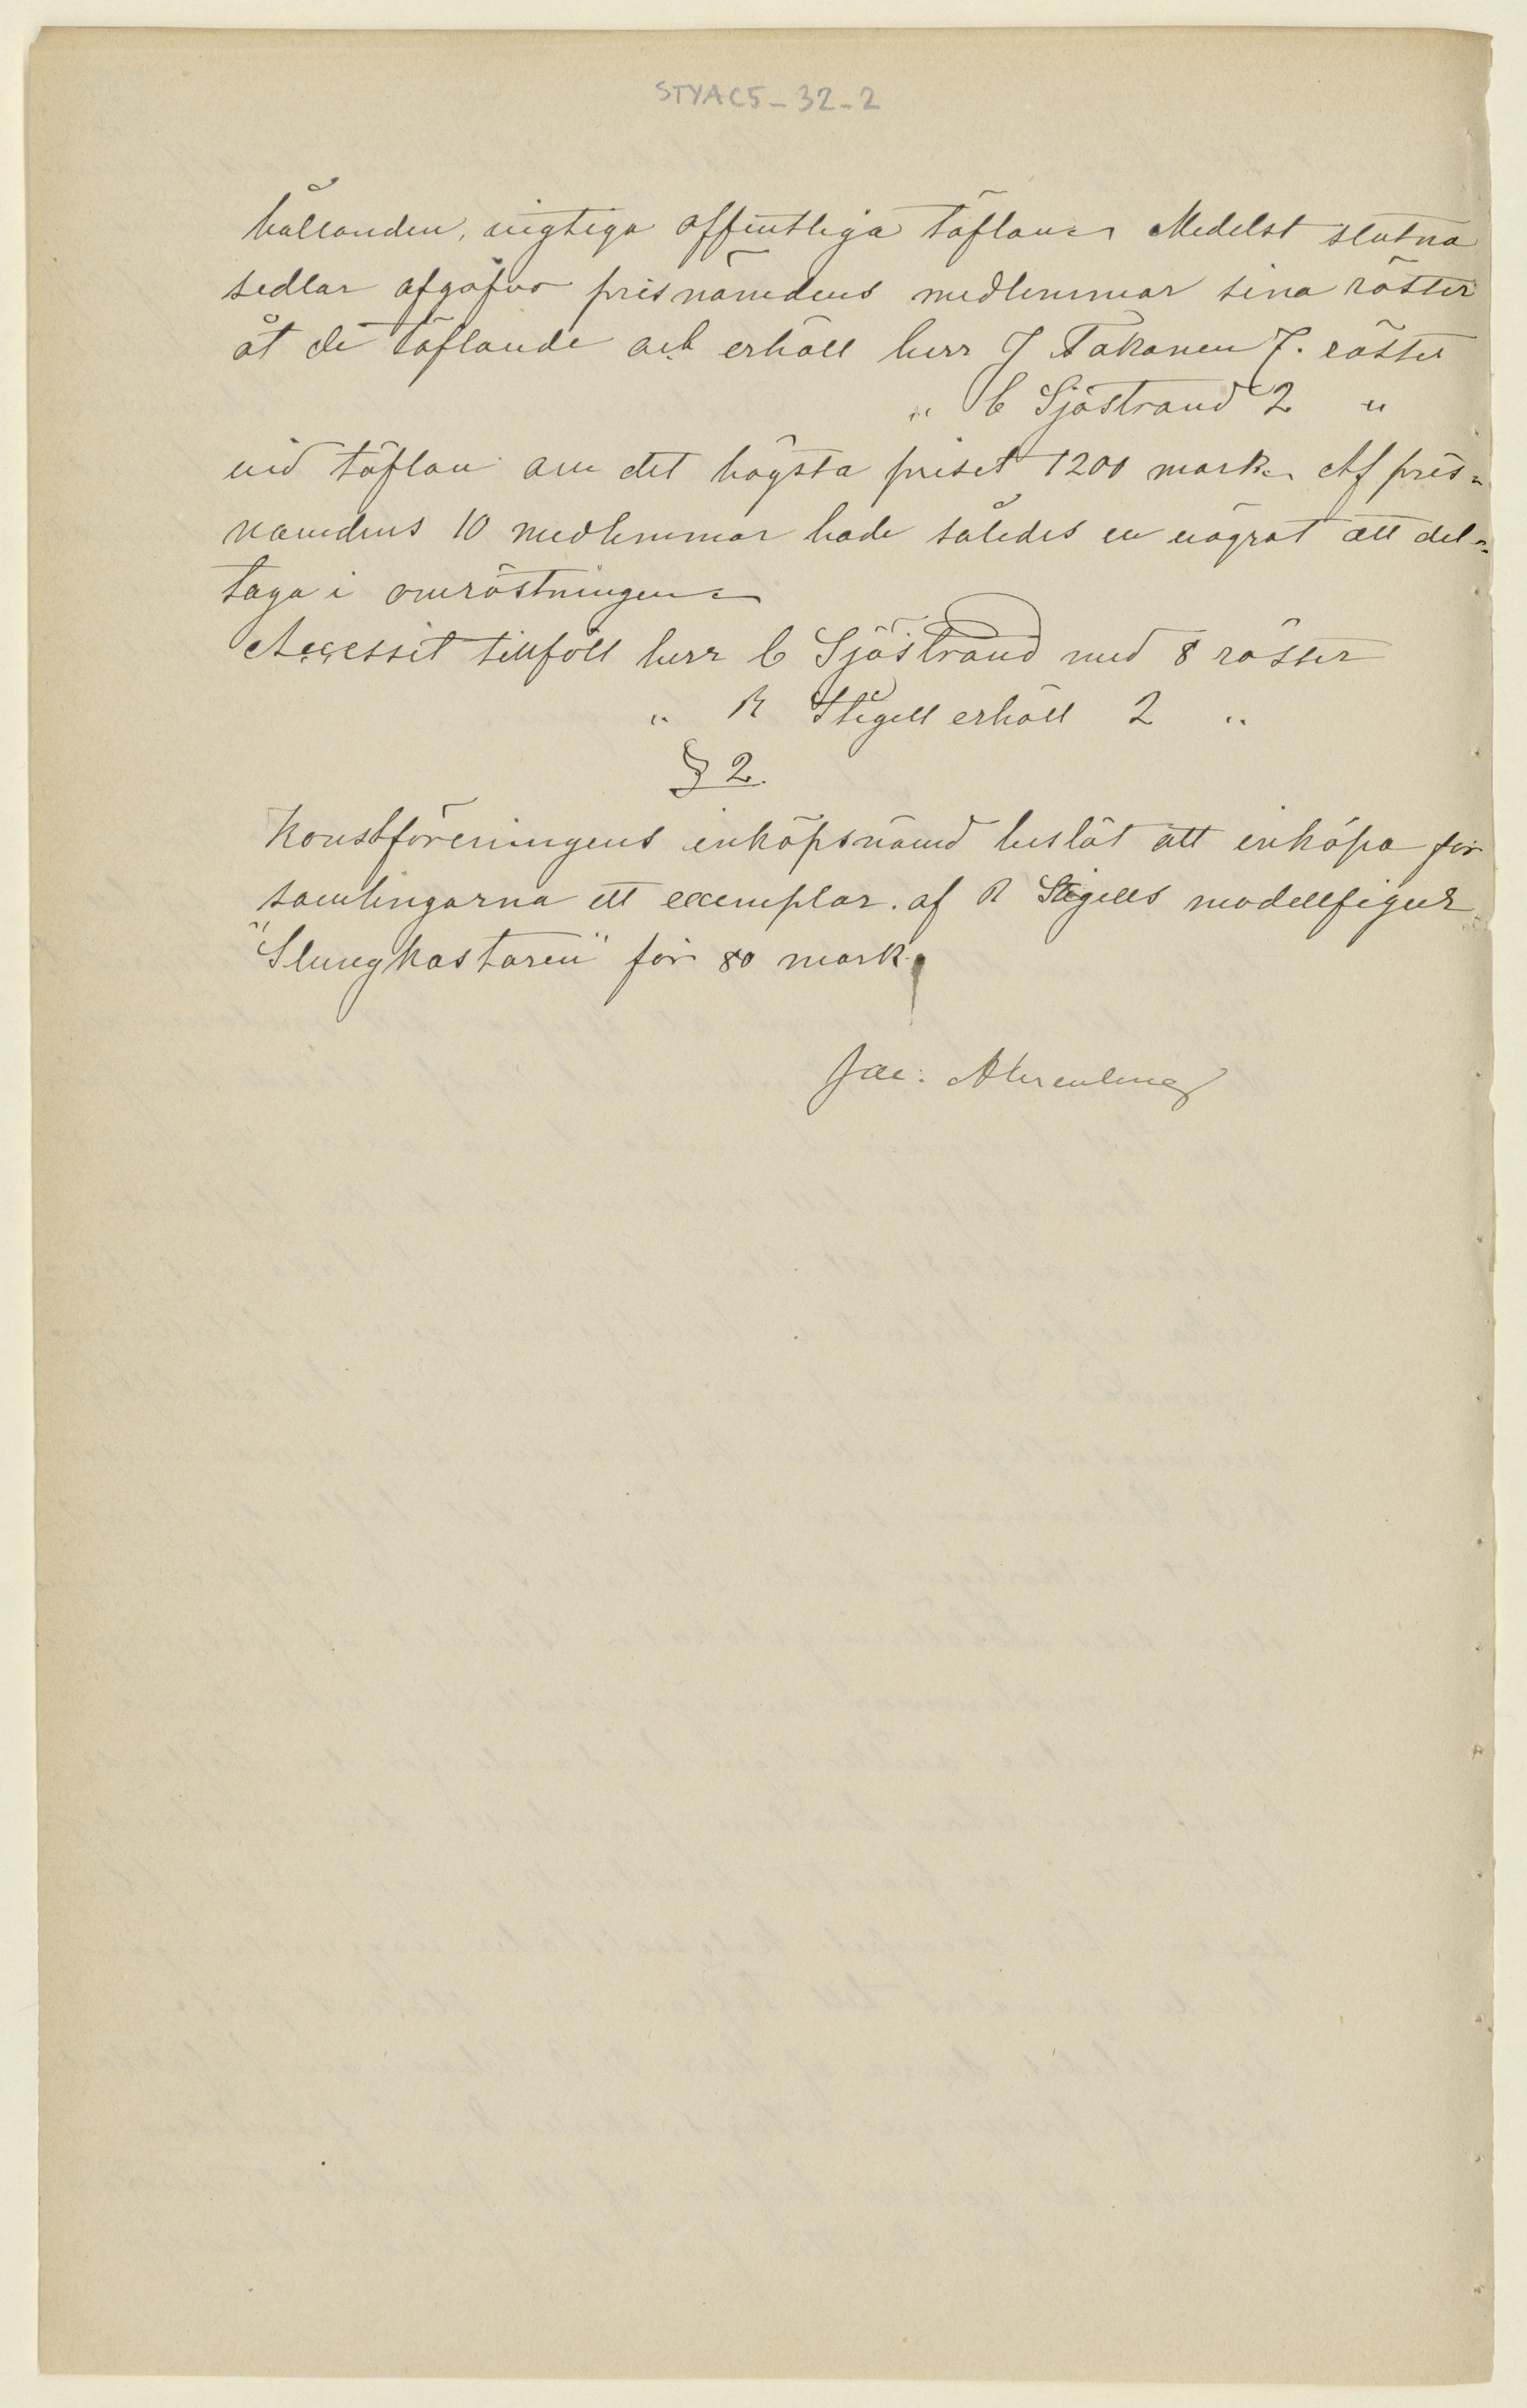 STYAC5-32-2
hållanden, vigtiga offentliga täflan. Medelst slutna
sedlar afgåfvo prisnämdens medlemmar sina röster
åt de täflande och erhöll herr J Takanen 7. röster
" C Sjöstrand 2 "
vid täflan om det högsta priset 1200 mark. Af pris=
nämdens 10 medlemmar hade således en vägrat att del=
taga i omröstningen.
Accessit tillföll herr C Sjöstrand med 8 röster
" R Stigell erhöll 2 "
§ 2.
Konstföreningens inköpsnämd beslöt att inköpa för
samlingarna ett exemplar. af R Stigells modellfigur
"Slungkastaren" för 80 mark.
Jac: Ahrenberg